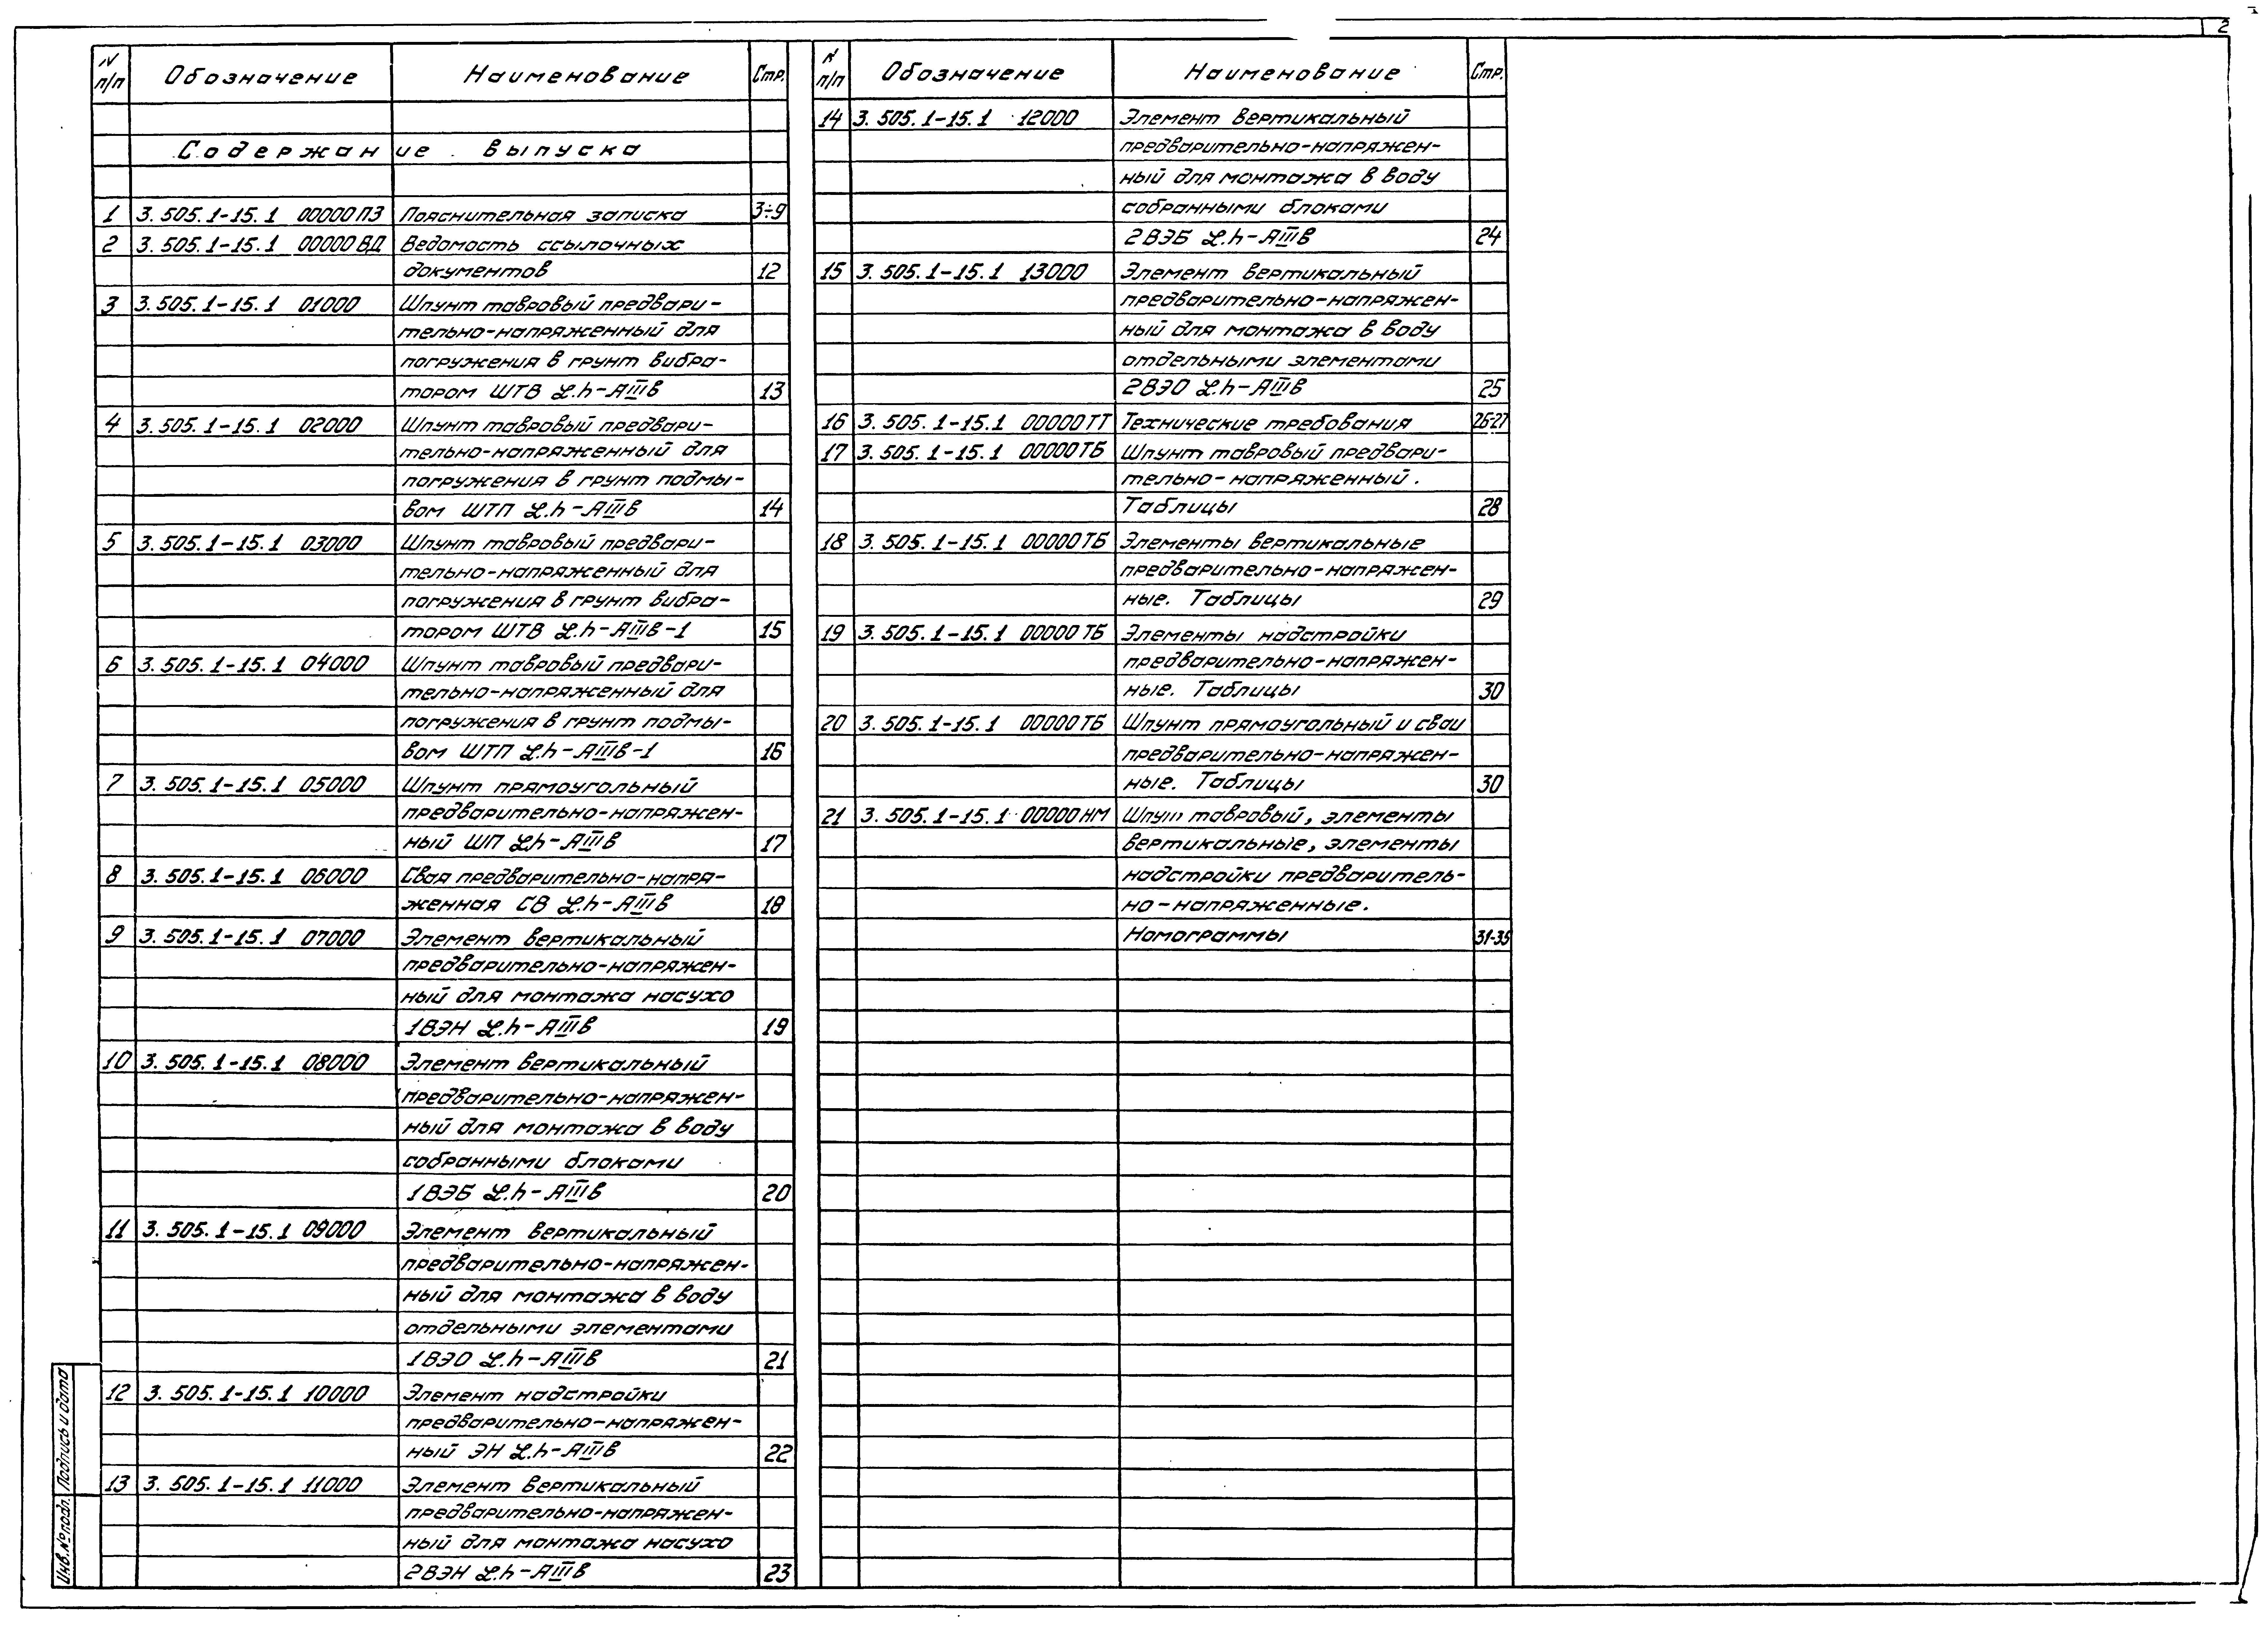 2
N п/п Обозначение Наименование Стр.
Содержание выпуска
1 3.505.1-15.1 00000ПЗ Пояснительная записка 3÷9
2 3.505.1-15.1 00000ВД Ведомость ссылочных
документов 12
3 3.505.1-15.1 01000 Шпунт тавровый предвари-
тельно-напряженный для
погружения в грунт вибра-
тором ШТВ L.h-АIIIв 13
4 3.505.1-15.1 02000 Шпунт тавровый предвари-
тельно-напряженный для
погружения в грунт подмы-
вом ШТП L.h-АIIIв 14
5 3.505.1-15.1 03000 Шпунт тавровый предвари-
тельно-напряженный для
погружения в грунт вибра-
тором ШТВ L.h-АIIIв-1 15
6 3.505.1-15.1 04000 Шпунт тавровый предвари-
тельно-напряженный для
погружения в грунт подмы-
вом ШТП L.h-АIIIв-1 16
7 3.505.1-15.1 05000 Шпунт прямоугольный
предварительно-напряжен-
ный ШП L.h-АIIIв 17
8 3.505.1-15.1 06000 Свая предварительно-напря-
женная СВ L.h-АIIIв 18
9 3.505.1-15.1 07000 Элемент вертикальный
предварительно-напряжен-
ный для монтажа насухо
1ВЭН L.h-АIIIв 19
10 3.505.1-15.1 08000 Элемент вертикальный
предварительно-напряжен-
ный для монтажа в воду
собранными блоками
1ВЭБ L.h-АIIIв 20
11 3.505.1-15.1 09000 Элемент вертикальный
предварительно-напряжен-
ный для монтажа в воду
отдельными элементами
1ВЭО L.h-АIIIв 21
12 3.505.1-15.1 10000 Элемент надстройки
предварительно-напряжен-
ный ЭН L.h-АIIIв 22
13 3.505.1-15.1 11000 Элемент вертикальный
предварительно-напряжен-
ный для монтажа насухо
2ВЭН L.h-АIIIв 23
N п/п Обозначение Наименование Стр.
14 3.505.1-15.1 12000 Элемент вертикальный
предварительно-напряжен-
ный для монтажа в воду
собранными блоками
2ВЭБ L.h-АIIIв 24
15 3.505.1-15.1 13000 Элемент вертикальный
предварительно-напряжен-
ный для монтажа в воду
отдельными элементами
2ВЭО L.h-АIIIв 25
16 3.505.1-15.1 00000ТТ Технические требования 26-27
17 3.505.1-15.1 00000ТБ Шпунт тавровый предвари-
тельно-напряженный.
Таблицы 28
18 3.505.1-15.1 00000ТБ Элементы вертикальные
предварительно-напряжен-
ные. Таблицы 29
19 3.505.1-15.1 00000ТБ Элементы надстройки
предварительно-напряжен-
ные. Таблицы 30
20 3.505.1-15.1 00000ТБ Шпунт прямоугольный и сваи
предварительно-напряжен-
ные. Таблицы 30
21 3.505.1-15.1 00000НМ Шпунт тавровый, элементы
вертикальные, элементы
надстройки предваритель-
но-напряженные.
Номограммы 31-35
Инв.№подл. Подпись и дата